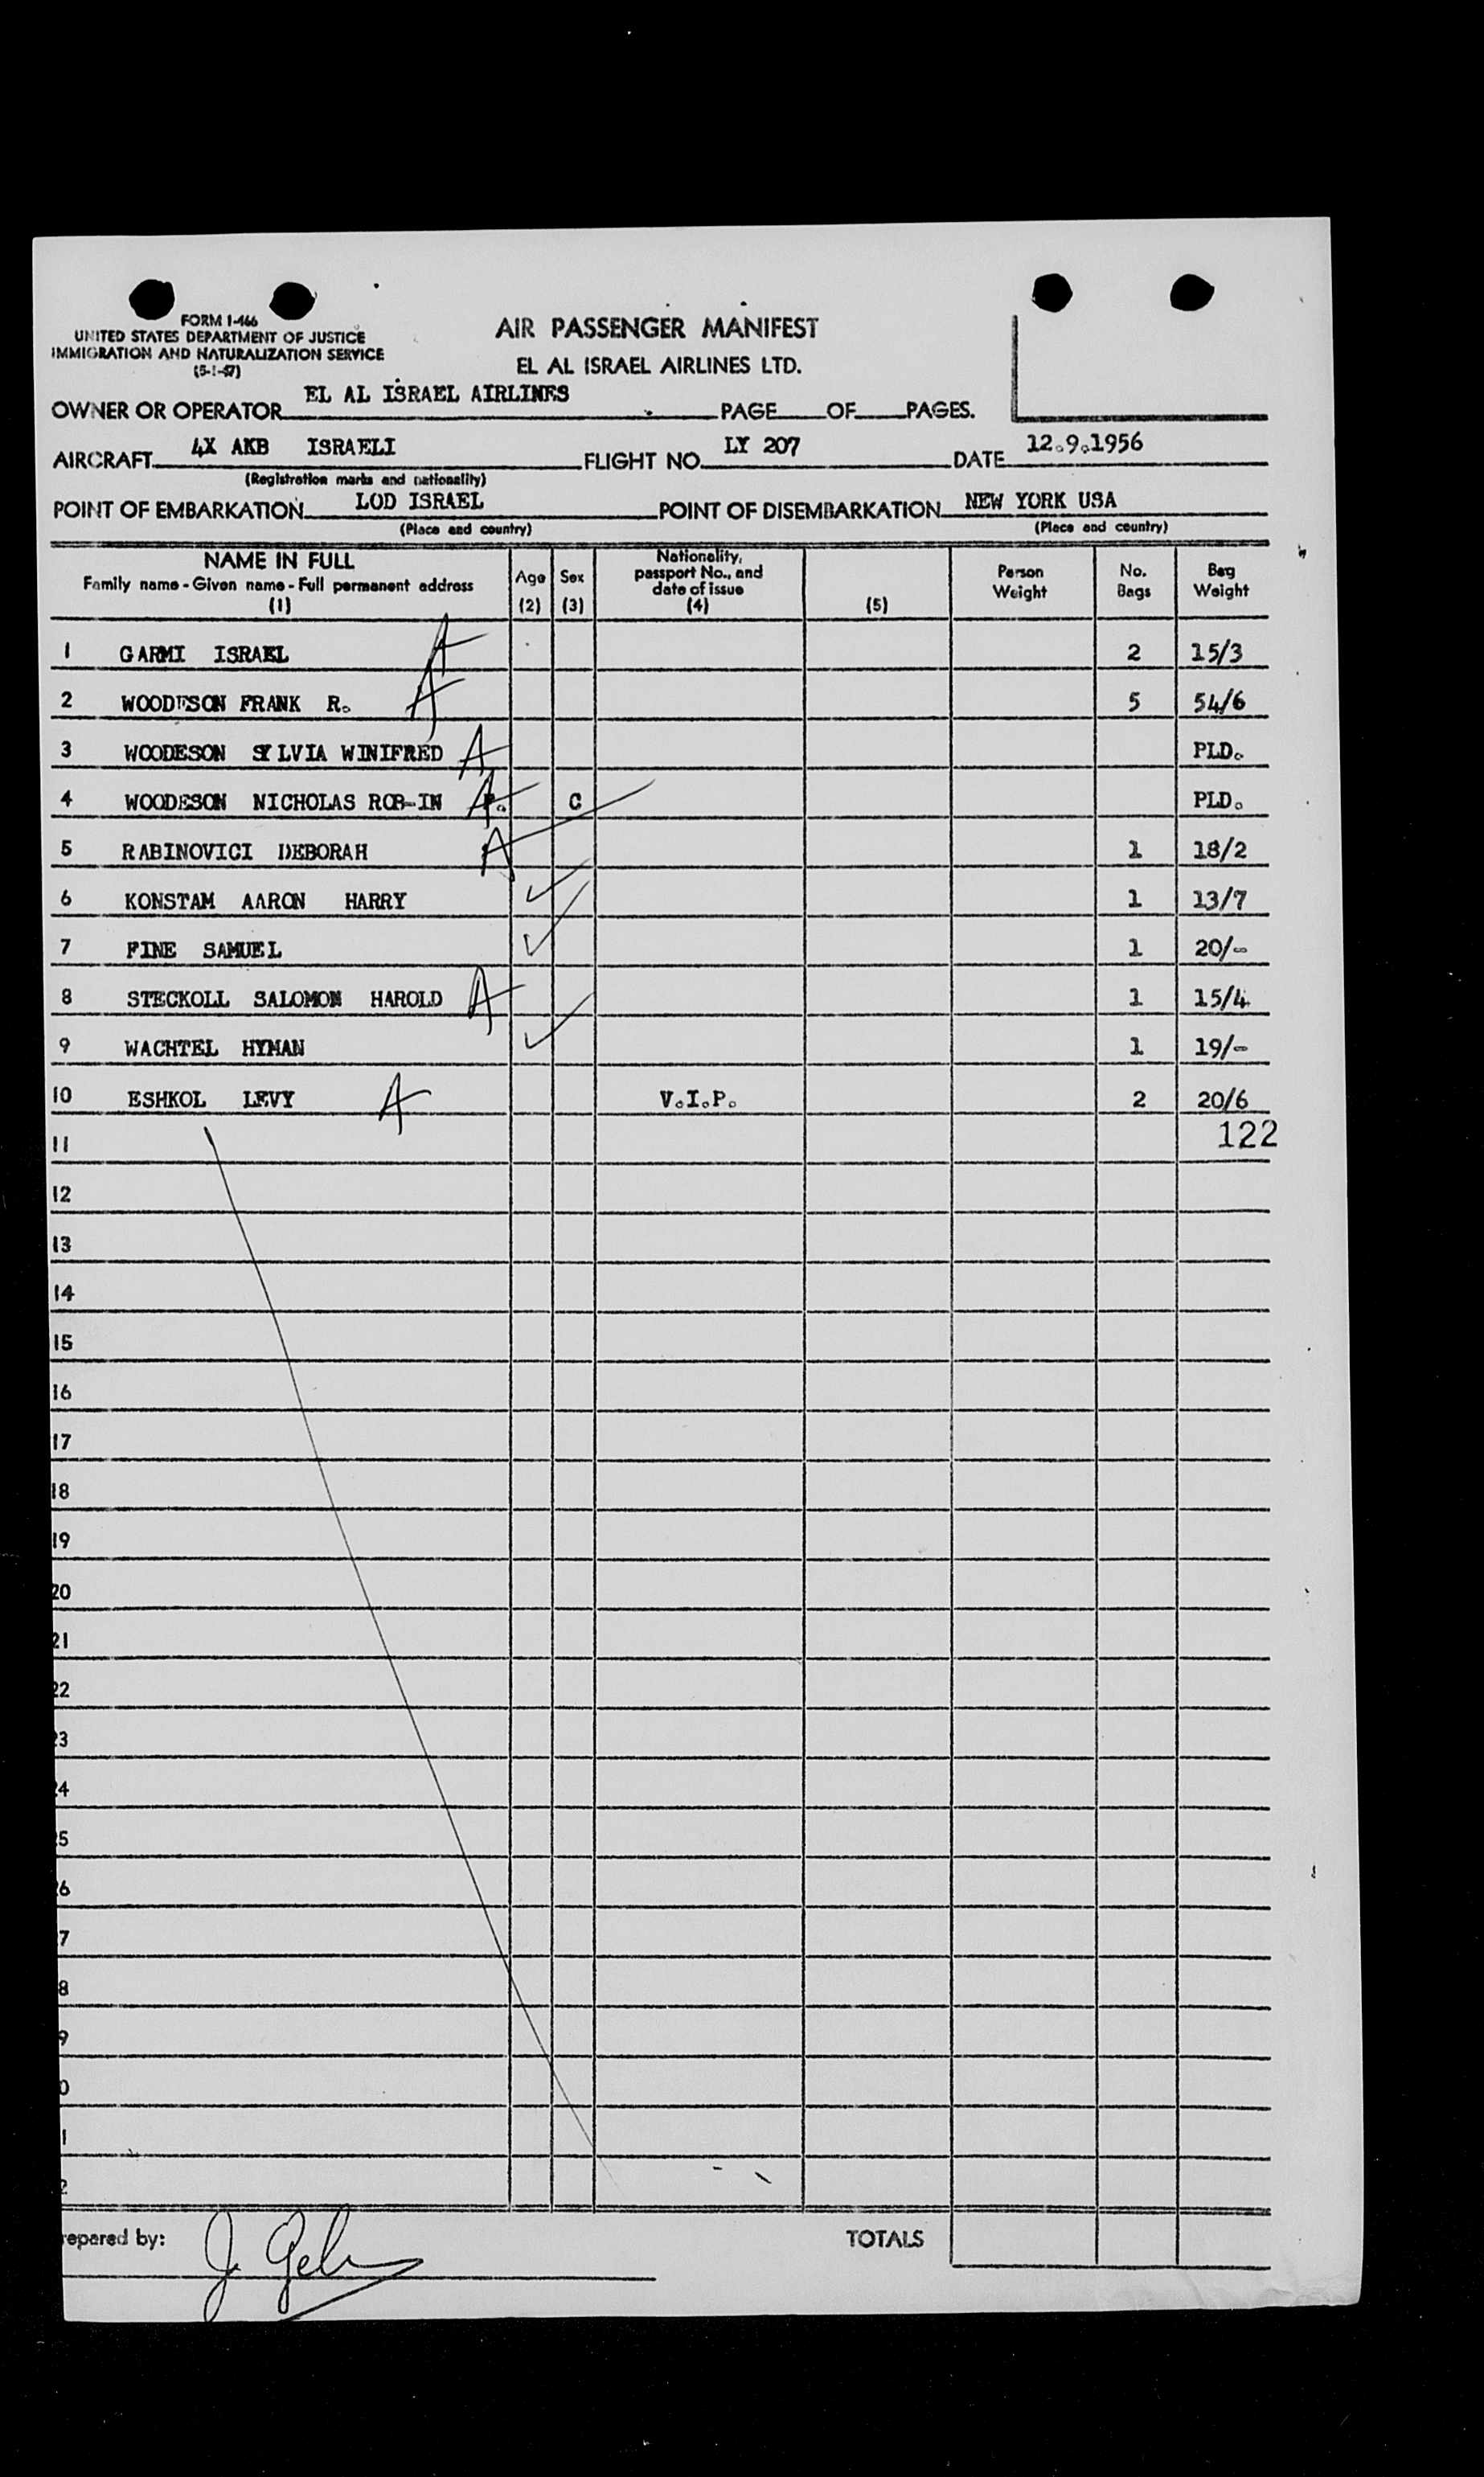 FORM I-466
UNITED STATES DEPARTMENT OF JUSTICE
IMMIGRATION AND NATURALIZATION SERVICE
(5-1-57)
AIR PASSENGER MANIFEST
EL AL ISRAEL AIRLINES LTD.
OWNER OR OPERATOR EL AL ISRAEL AIRLINES PAGE OF PAGES.
AIRCRAFT 4X AKB ISRAELI FLIGHT NO. LY 207 DATE 12.9.1956
(Registration marks and nationality)
POINT OF EMBARKATION LOD ISRAEL POINT OF DISEMBARKATION NEW YORK USA
(Place and country) (Place and country)
NAME IN FULL
Family name - Given name - Full permanent address
(1)
Age
(2)
Sex
(3)
Nationality,
passport No., and
date of issue
(4)
(5)
Person
Weight
No.
Bags
Bag
Weight
1 GARMI ISRAEL A 2 15/3
2 WOODESON FRANK R. A 5 54/6
3 WOODESON SYLVIA WINIFRED A PLD.
4 WOODESON NICHOLAS ROB-IN A C PLD.
5 RABINOVICI DEBORAH A 1 18/2
6 KONSTAM AARON HARRY ✓ 1 13/7
7 FINE SAMUEL ✓ 1 20/-
8 STECKOLL SALOMON HAROLD A 1 15/4
9 WACHTEL HYMAN ✓ 1 19/-
10 ESHKOL LEVY A V.I.P. 2 20/6
11 122
12
13
14
15
16
17
18
19
20
21
22
23
24
5
6
7
8
9
0
1
2
repared by: TOTALS